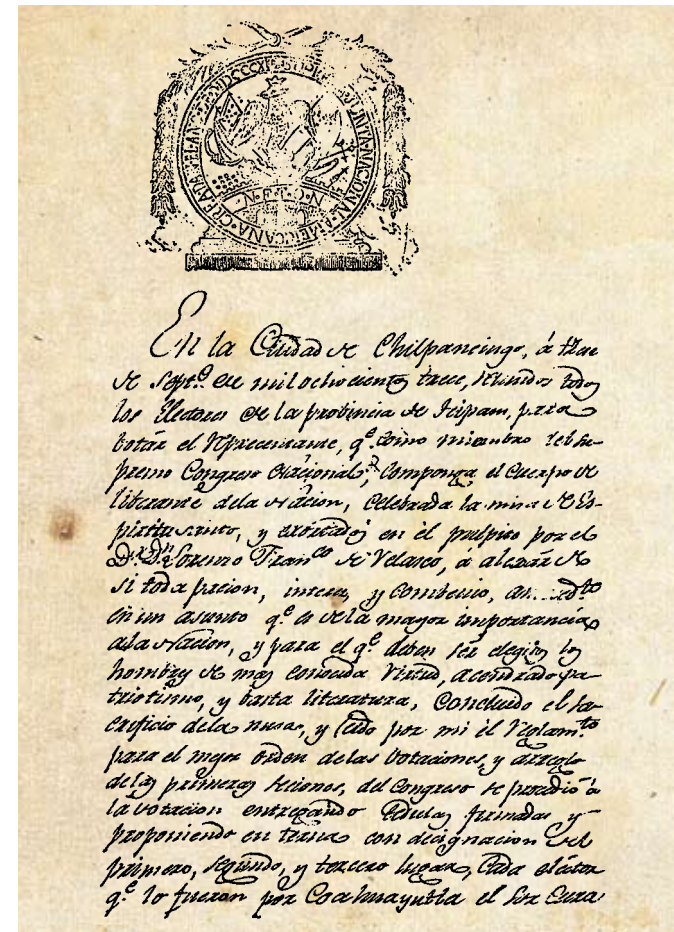 NACIONAL AMERICANA CREADA EL AÑ
N. F. T. O. N
En la Ciudad de Chilpancingo, á trece
de Sept.e de mil ochocientos trece, reunidos todos
los Electores de la provincia de Tecpam, para
botár el Representante, q.e como miembro del Su-
premo Congreso Nacional, componga el Cuerpo de
liberante dela Nacion, Celebrada la misa de Es-
piritu santo, y exôrtados en él pulpito por el
D.r D.n Lorenzo Fran.co de Velasco, á alexár de
si toda pacion, interes, y combenio,
en un asunto q.e es de la mayor importancia
ala Nacion, y para el q.e deben sér elegidos los
hombres de mas conocida Virtud, acendrado pa-
triotismo, y basta literatura, Concluido el Sa-
crificio dela misa, y leido por mi él Reglam.to
para el mejor órden de las Votaciones, y arreglo
delas primeras seciones, del Congreso se procedió á
la votacion entregando Cedulas firmadas y
proponiendo en terna con designacion del
primero, segundo, y tercero lugar, Cada elector
q.e lo fueron por Coahuayutla el Sor Cura